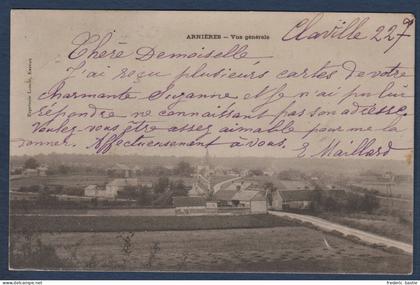 ARNIÈRES – Vue générale
Claville 22 7
Chère Demoiselle
J'ai reçu plusieurs cartes de votre
charmante Suzanne et je n'ai pu lui
répondre ne connaissant pas son adresse.
Voulez-vous être assez aimable pour me la
donner. Affectueusement à vous. E Maillard
frederic bastie